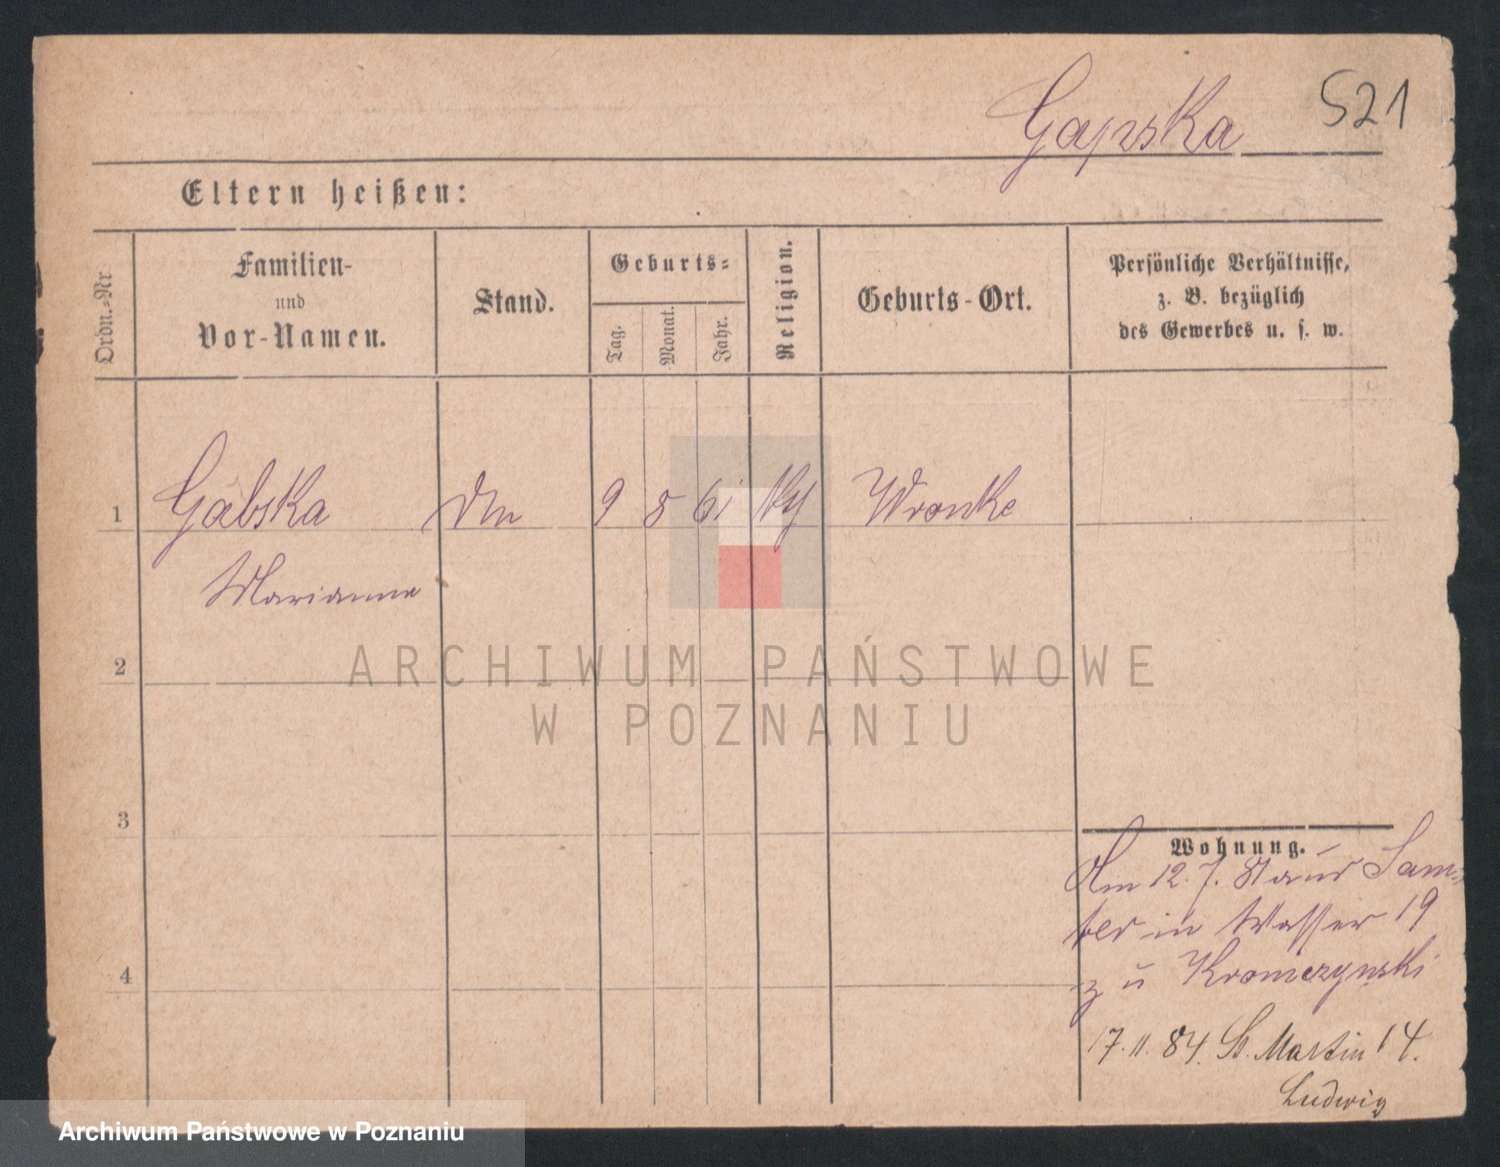 Gapska 521
Eltern heißen:
Ordn.-Nr
Familien-
und
Vor-Namen.
Stand.
Geburts-
Tag.
Monat.
Jahr.
Religion.
Geburts-Ort.
Persönliche Verhältnisse,
z. B. bezüglich
des Gewerbes u. s. w.
1 Gabska 9 8 61 Wronke
Marianna
2
ARCHIWUM PAŃSTWOWE
W POZNANIU
3
Wohnung.
Am 12. 7. 81 aus Sam-
ter in Wasser 19
zu
4
17. 11. 84. St. Martin 14.
Ludwig
Archiwum Państwowe w Poznaniu